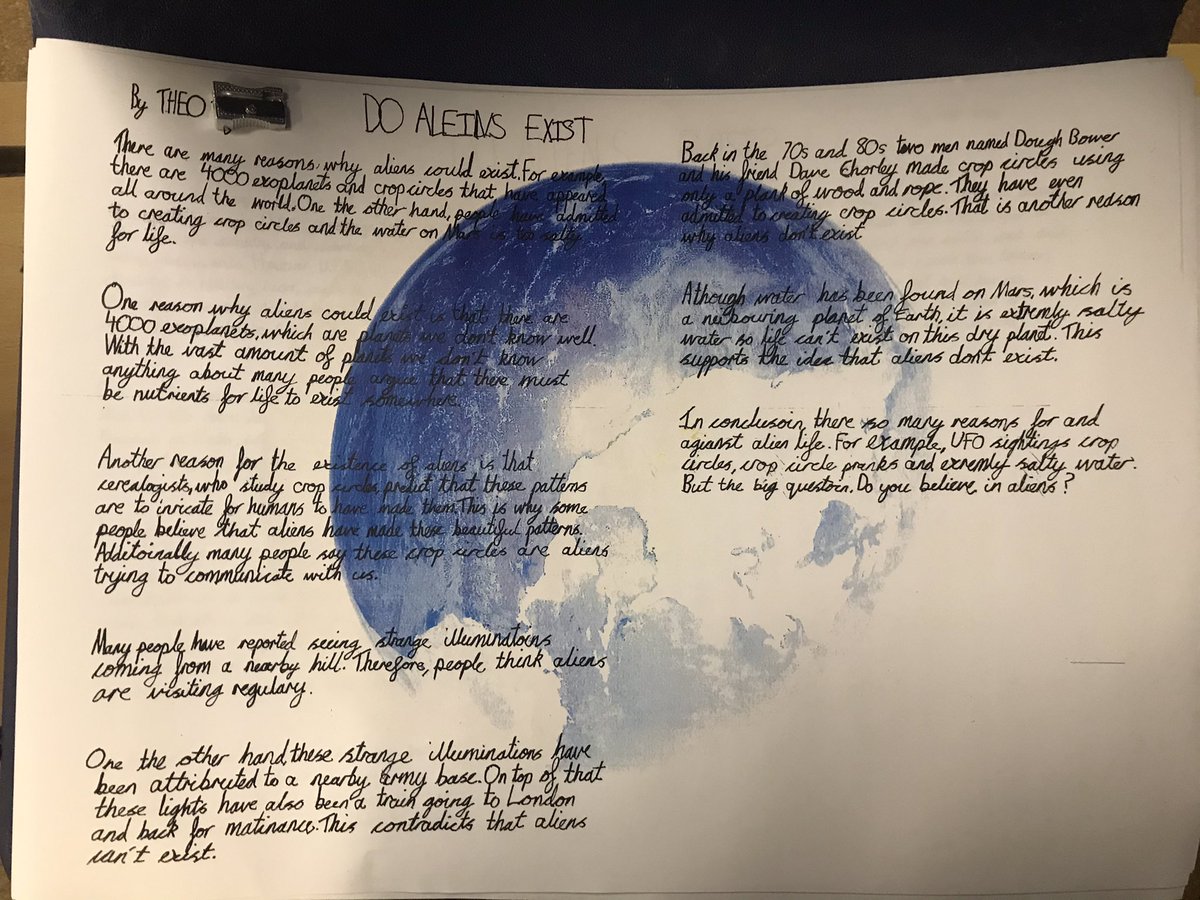 By THEO
DO ALEINS EXIST
There are many reasons why aliens could exist. For example,
there are 4000 exoplanets and crop circles that have appeared
all around the world. One the other hand, people have admitted
to creating crop circles and the water on Mars is too salty
for life.
One reason why aliens could exist is that there are
4000 exoplanets, which are planets we don't know well.
With the vast amount of planets we don't know
anything about many people argue that there must
be nutrients for life to exist somewhere.
Another reason for the existence of aliens is that
cerealogists, who study crop circles, predict that these pattens
are to inricate for humans to have made them. This is why some
people believe that aliens have made these beautiful patterns.
Additoinally many people say these crop circles are aliens
trying to communicate with us.
Many people have reported seeing strange illuminatoins
coming from a nearby hill. Therefore, people think aliens
are visiting regulary.
One the other hand, these strange illuminations have
been attribruted to a nearby army base. On top of that
these lights have also been a train going to London
and back for matinance. This contradicts that aliens
can't exist.
Back in the 70s and 80s two men named Dough Bower
and his friend Dave Chorley made crop circles using
only a plank of wood and rope. They have even
admitted to creating crop circles. That is another reason
why aliens don't exist
Athough water has been found on Mars, which is
a neibowring planet of Earth, it is extremly salty
water so life can't exist on this dry planet. This
supports the idea that aliens don't exist.
In conclusoin, there so many reasons for and
agianst alien life. For example, UFO sightings crop
circles, crop circle pranks and exremly salty water.
But the big questoin. Do you believe in aliens?